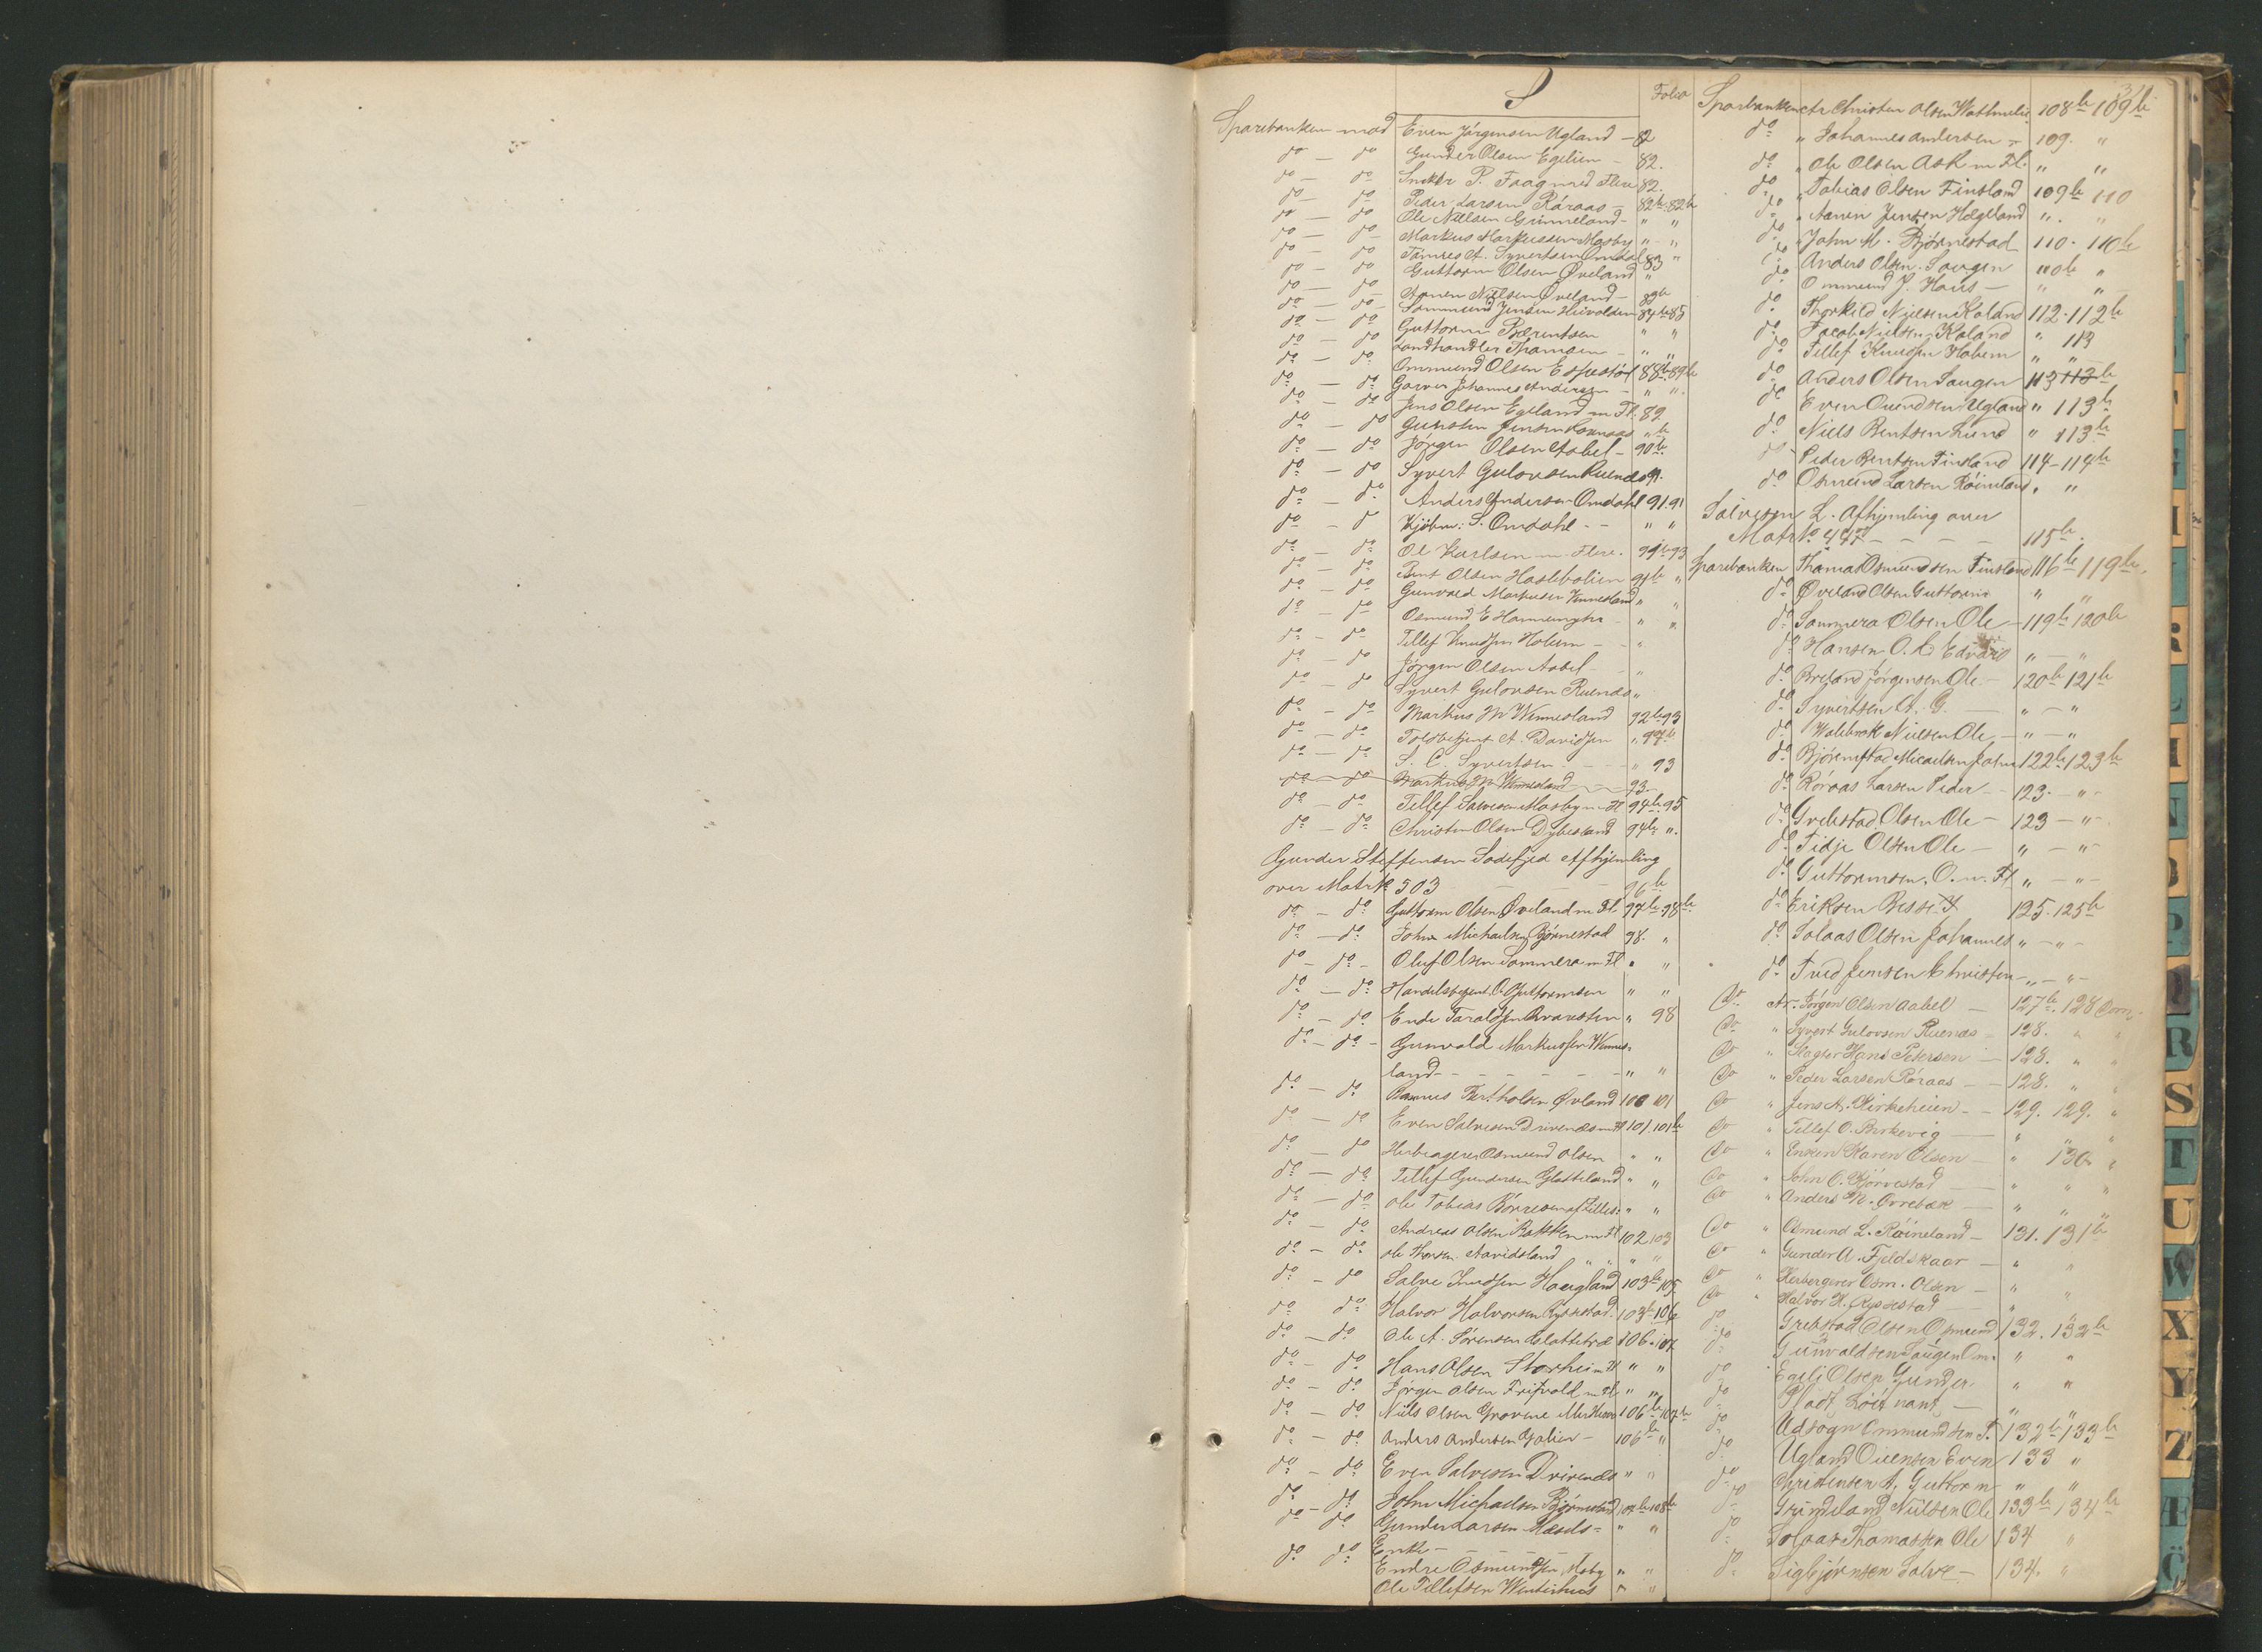 S
Folio
Sparebanken mod Even Jørgensen Ugland - 82
do - do Gunder Olsen Egelien - 82.
do - do Snekker P. Faag med Flere 82.
do - do Peder Larsen Røraas - 82b 82b
do - do Ole Nielsen Grimmeland - " "
do - do Markus Markussen Mosby " "
do - do Tønnes A. Syvertsen Omdal 83 "
do - do Guttorm Olsen Øveland "
do - do Aanen Nielsen Øveland - 83b
do - do Sommund Jensen 84b 85
do - do Guttorm Bærentsen " "
do - do Landhandler Thomsen - " "
do - do Ommund Olsen Espestøl 88b 89b
do - do Garver Johannes Andersen " "
do - do Jens Olsen Egeland m Fl. 89
do - do Gunsten Jensen "b
do - do Jørgen Olsen Aabel - 90b
do - do Syvert Gulovsen Ruenæs 91.
do - do Anders Andersen Omdahl 91.91
do - do Kjøbm: S. Omdahl - - " "
do - do Ole Karlsen m. Flere. 91b 93
do - do Bent Olsen Haslebolien 91b "
do - do Gunvald Markusen Vinnesland " "
do - do Osmund E " "
do - do Tellef Knudsen Holum - - "
do - do Jørgen Olsen Aabel - "
do - do Syvert Gulovsen Ruenæs "
do - do Markus M Winnesland 92b 93
do - do Toldbetjent A. Davidsen
do - do S. C. Syvertsen - - " 93
do - do Markus M Winnesland 93
do - do Tellef Salvesen Mosby m Fl 94b 95
do - do Christen Olsen Dybesland 94b ".
Gunder Steffensen Sodefjed Afhjemling
over Matrk 503 - - - 96b
do - do Guttorm Olsen Øveland m Fl. 97b 98b
do - do John Michaelsen Bjørnestad 98. "
do - do - Oluf Olsen Sommera m Fl " "
do - do Handelsbetjent O. Guttormsen " "
do - do Ende Taraldsen Aravesten " 98
do - do - Gunvald Markussen Winnes-
land - - - - " "
do - do Rasmus Bertholsen Øvland 100 101
do - do Even Salvesen Drivenæs m Fl 101.101b
do - do Herbergerer Osmund Olsen " "
do - do Tellef Gundersen Glatteland " "
do - do Ole Tobias Børresen " "
do - do Andreas Olsen Bakken m Fl 102 103
do - do Ole Thorsen Aavidsland " "
do - do Salve Knudsen Haugland 103b 105
do do Halvor Halvorsen Rysstad 103b 106
do - do Ole A. Sørensen Slattetræ 106.107
do - do Hans Olsen Storhei m Fl " "
do - do Jørgen Olsen Frivold m Fl " "
do - do Niels Olsen Grovene 106b 107b
do - do Anders Andersen Galier - 106b "
do - do Even Salvesen Drivenæs " "
do - do John Michaelsen Bjørnestad 107b 108b
do do Gunder Larsen Mæsels- " "
Enke - - - -
do do Endre Osmundsen Mosby " "
Ole Tellefsen Winterhus " "
Sparebanken ctr Christen Olsen 108b 109b
do " Johannes Andersen - 109. "
do " Ole Olsen Ask m Fl. " "
do " Tobias Olsen Finsland 109b 110
do " Aanen Jensen Hægeland " "
do " John M. Bjørnestad 110. 110b
do Anders Olsen Saugen 110b "
do Ommund J. Haus - " "
do Thorkild Nielsen Kaland 112. 112b
do Jacob Nielsen Kaland " 113
do Tellef Knudsen Holum " "
do Anders Olsen Saugen 113 113b
do Even Ouendsen Ugland " 113b
do Niels Bentsen Lund " 113b
do Peder Bentsen Finsland 114 - 114b
do Osmund Larsen Røineland " "
Salvesen L. Afhjemling over
Matr No 447 - - - - 115b.
Sparebanken Thomas Osmundsen Finsland 116b 119b.
do Øveland Olsen Guttorm " "
do Sammera Olsen Ole - 119b 120b
do Hansen O. L. Edvard " - "
do Breland Jørgensen Ole - 120b 121b
do Syvertsen A. G. - " - "
do Walebrok Nielsen Ole - " - "
do Bjørnestad Micaelsen John 122b 123b
do Røraas Larsen Peder - - 123 - " -
do Grebstad Olsen Ole - 123 - " -
do Tidje Olsen Ole - " - " -
do Guttormsen, O. m. Fl " - " -
do Eriksen Besse. 125. 125b
do Solaas Olsen Johannes " - " -
do Tved Jensen Christen - " - " -
Do Ctr. Jørgen Olsen Aabel - 127b. 128
Do " Syvert Gulovsen Ruenæs - 128. " "
Do " Slagter Hans Petersen - 128. " "
Do " Peder Larsen Røraas - 128. " "
Do " Jens A. Birkeheien - - 129. 129. "
Do " Tellef O. Birkevig - " " "
Do " Enken Karen Olsen - " 130 "
Do " John O. Bjørvestad - " " "
Do " Anders N. Orrebæk - " " "
Do " Osmund L. Røineland - 131. 131b
Do " Gunder A. Fjeldskaar - " "
Do " Herbergerer Osm. Olsen - " "
Do " Halvor H. Rysstad - "
do Grebstad Olsen Osmund 132. 132b
do Gunvaldsen Saugen Om. " "
do Egeli Olsen Gunder. " "
do Pladt, Løitnant, - " "
do Udsogn Ommundsen T. 132b 133b
do Ugland Ouensen Even 133 "
do Christensen A. Guttorm " "
do Grindland Nielsen Ole 133b 134b
do Solaas Thomassen Ole 134 "
do Sigbjørnsen Salve - 134. "
G
H
I
K
L
M
N
O
P
Q
R
S
T
U
W
X
Y
Z
Æ